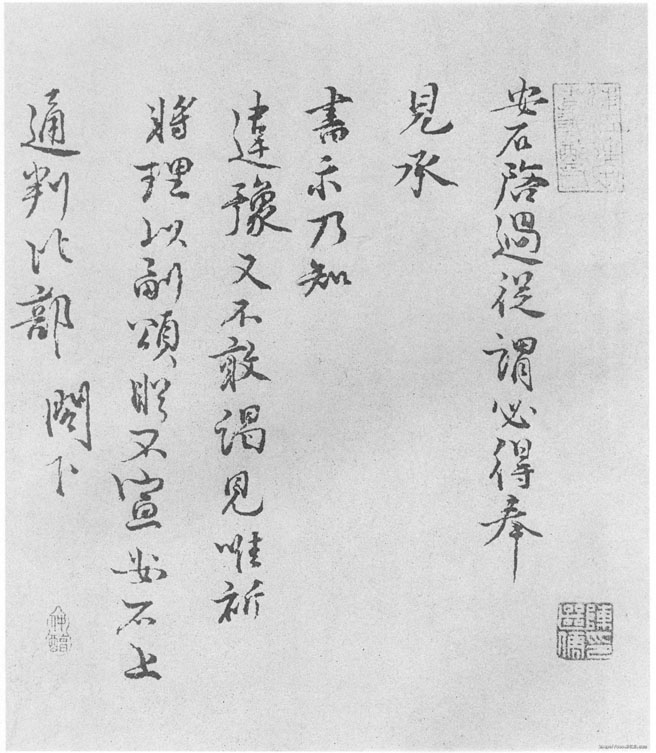 安石啓過從謂必得奉
見承
書示乃知
違豫又不敢謁見唯祈
將理以副頌不宣安石上
通判比部 閣下